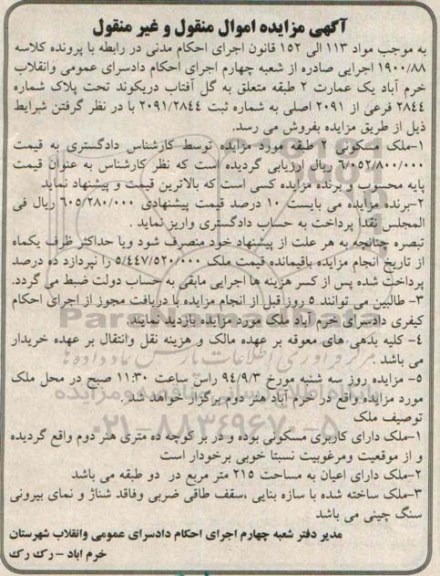 آگهی مزایده اموال منقول و غیر منقول
به موجب مواد ۱۱۳ الی ۱۵۲ قانون اجرای احکام مدنی در رابطه با پرونده کلاسه
۱۹۰۰/۸۸ اجرایی صادره از شعبه چهارم اجرای احکام دادسرای عمومی وانقلاب
خرم آباد یک عمارت ۲ طبقه متعلق به گل آفتاب دریکوند تحت پلاک شماره
۲۸۴۴ فرعی از ۲۰۹۱ اصلی به شماره ثبت ۲۰۹۱/۲۸۴۴ با در نظر گرفتن شرایط
ذیل از طریق مزایده بفروش می رسد.
۱-ملک مسکونی ۲ طبقه مورد مزایده توسط کارشناس دادگستری به قیمت
۶/۰۵۲/۸۰۰/۰۰۰ ریال ارزیابی گردیده است که نظر کارشناس به عنوان قیمت
پایه محسوب و برنده مزایده کسی است که بالاترین قیمت و پیشنهاد نماید
۲-برنده مزایده می بایست ۱۰ درصد قیمت پیشنهادی ۶۰۵/۲۸۰/۰۰۰ ریال فی
المجلس نقدا پرداخت به حساب دادگستری واریز نماید .
تبصره چنانچه به هر علت از پیشنهاد خود منصرف شود ویا حداکثر ظرف یکماه
از تاریخ انجام مزایده باقیمانده قیمت ملک ۵/۴۴۷/۵۲۰/۰۰۰ را نپردازد ده درصد
پرداخت شده پس از کسر هزینه ها اجرایی مابقی به حساب دولت ضبط می گردد.
۳- طالبین می توانند ۵ روز قبل از انجام مزایده با دریافت مجوز از اجرای احکام
کیفری دادسرای خرم آباد ملک مورد مزایده بازدید نمایند
۴- کلیه بدهی های معوقه بر عهده مالک و هزینه نقل وانتقال بر عهده خریدار
می باشد .
۵- مزایده روز سه شنبه مورخ ۹۴/۹/۳ راس ساعت ۱۱:۳۰ صبح در محل ملک
مورد مزایده واقع در خرم آباد هنر دوم برگزار خواهد شد.
توصیف ملک
۱-ملک دارای کاربری مسکونی بوده و در بر کوچه ده متری هنر دوم واقع گردیده
و از موقعیت ومرغوبیت نسبتا خوبی برخودار است
۲-ملک دارای اعیان به مساحت ۲۱۵ متر مربع در دو طبقه می باشد
۳-ملک ساخته شده با سازه بنایی ،سقف طاقی ضربی وفاقد شناژ و نمای بیرونی
سنگ چینی می باشد
مدیر دفتر شعبه چهارم اجرای احکام دادسرای عمومی وانقلاب شهرستان
خرم اباد - رک رک
ParsNamadData
۰۲۱-۸۸۳۴۹۶۷۰-۵